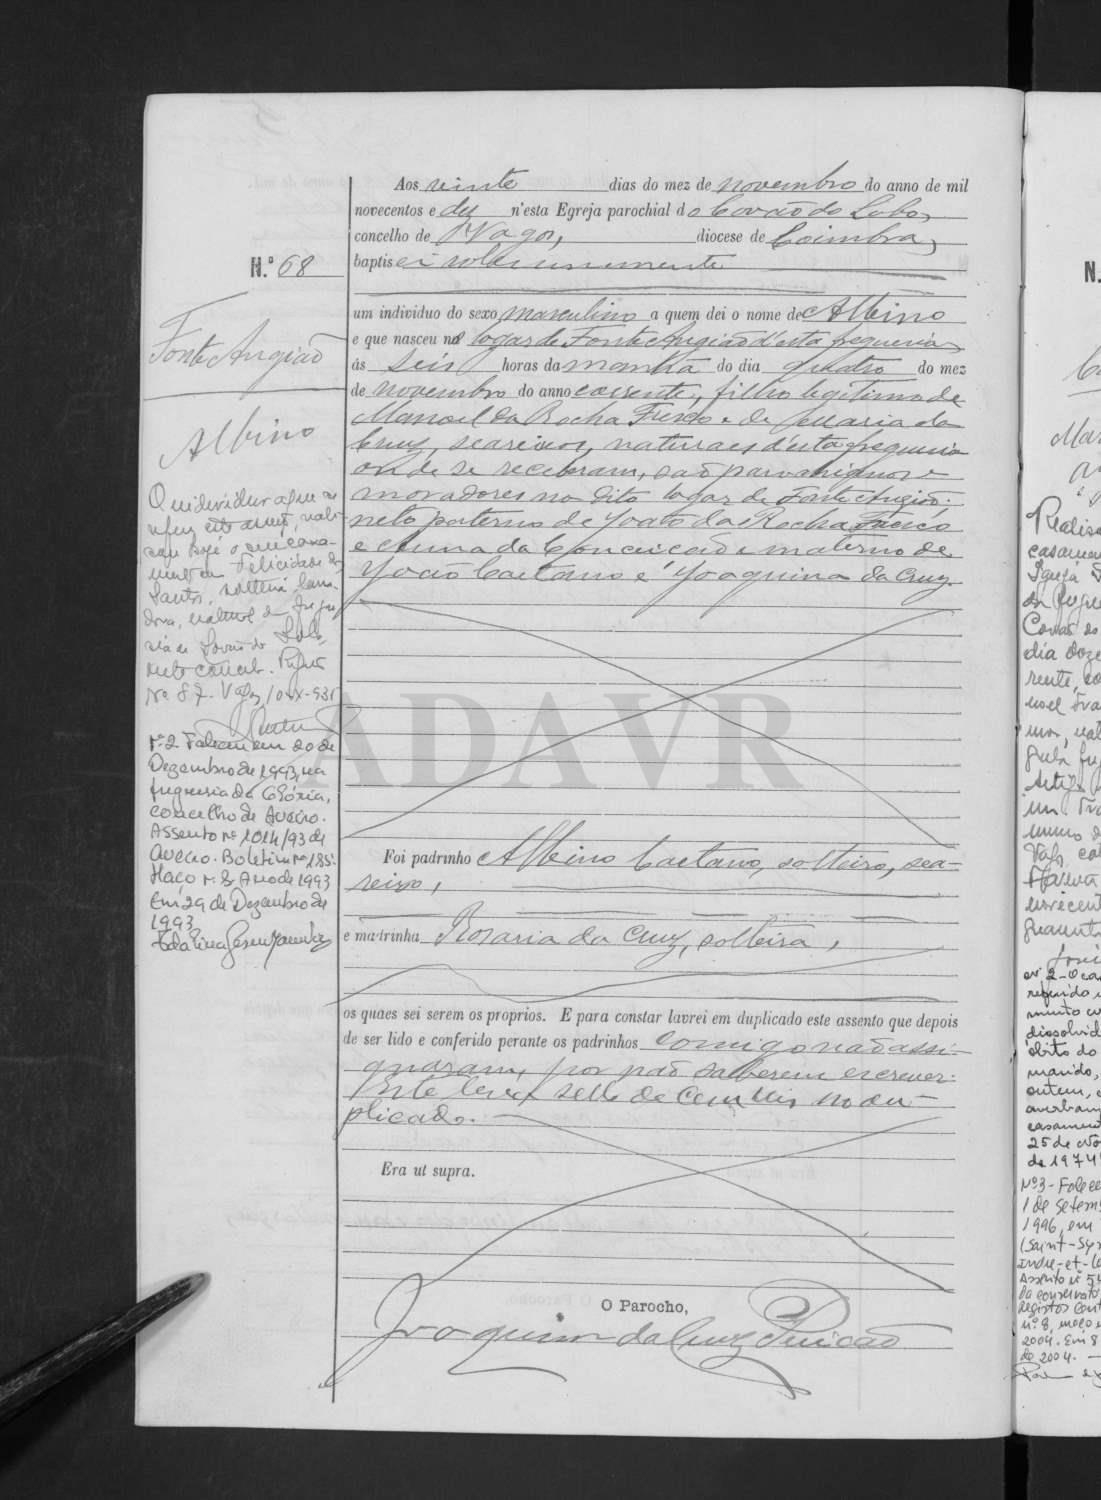 N.º 68
Fonte Angião
Albino
O individuo a que se
refere este assento, reali-
sou hoje o seu casa-
mento com Felicidade dos
Santos, solteira, lavra-
dora, natural da fregue-
sia de Covão do Lobo,
neste concelho. Registo
Nº 87. Vagos,
Nº 2. Faleceu em 20 de
Dezembro de 1993, na
freguesia da Glória,
concelho de Aveiro.
Assento nº 1014/93 de
Aveiro. Boletim nº 185:
Maço nº 8 Ano de 1993
Em 29 de Dezembro de
1993
Aos vinte dias do mez de novembro do anno de mil
novecentos e dez n'esta Egreja parochial do Covão do Lobo,
concelho de Vagos, diocese de Coimbra,
baptisei solemnemente
um individuo do sexo masculino a quem dei o nome de Albino
e que nasceu no logar de Fonte Angião d'esta freguesia
ás seis horas da manhã do dia quatro do mez
de novembro do anno corrente, filho legitimo de
Manoel da Rocha Fresco e de Maria da
Cruz, seareiros, naturaes d'esta freguesia
onde se receberam, são parochianos e
moradores no dito logar de Fonte Angião:
neto paterno de João da Rocha Fresco
e Anna da Conceição e materno de
João Caetano e Joaquina da Cruz.
ADAVR
Foi padrinho Albino Caetano, solteiro, sea-
reiro,
e madrinha Rosaria da Cruz, solteira,
os quaes sei serem os proprios. E para constar lavrei em duplicado este assento que depois
de ser lido e conferido perante os padrinhos comigo não assi-
gnaram, por não saberem escrever.
Este leva sello de cem reis no du-
plicado.
Era ut supra.
O Parocho,
Joaquim da Cruz
N.
Realiso
casamen
Igreja
da fregu
Covão do
dia doze
rente, co
25 de
de 1974
Nº 3 - Falece
1 de Setem
1996, em
(Saint-Sym
Indre-et-Lo
Assento nº 54
da conservató
registos cent
nº 8, maço
2004. Em 8
de 2004.